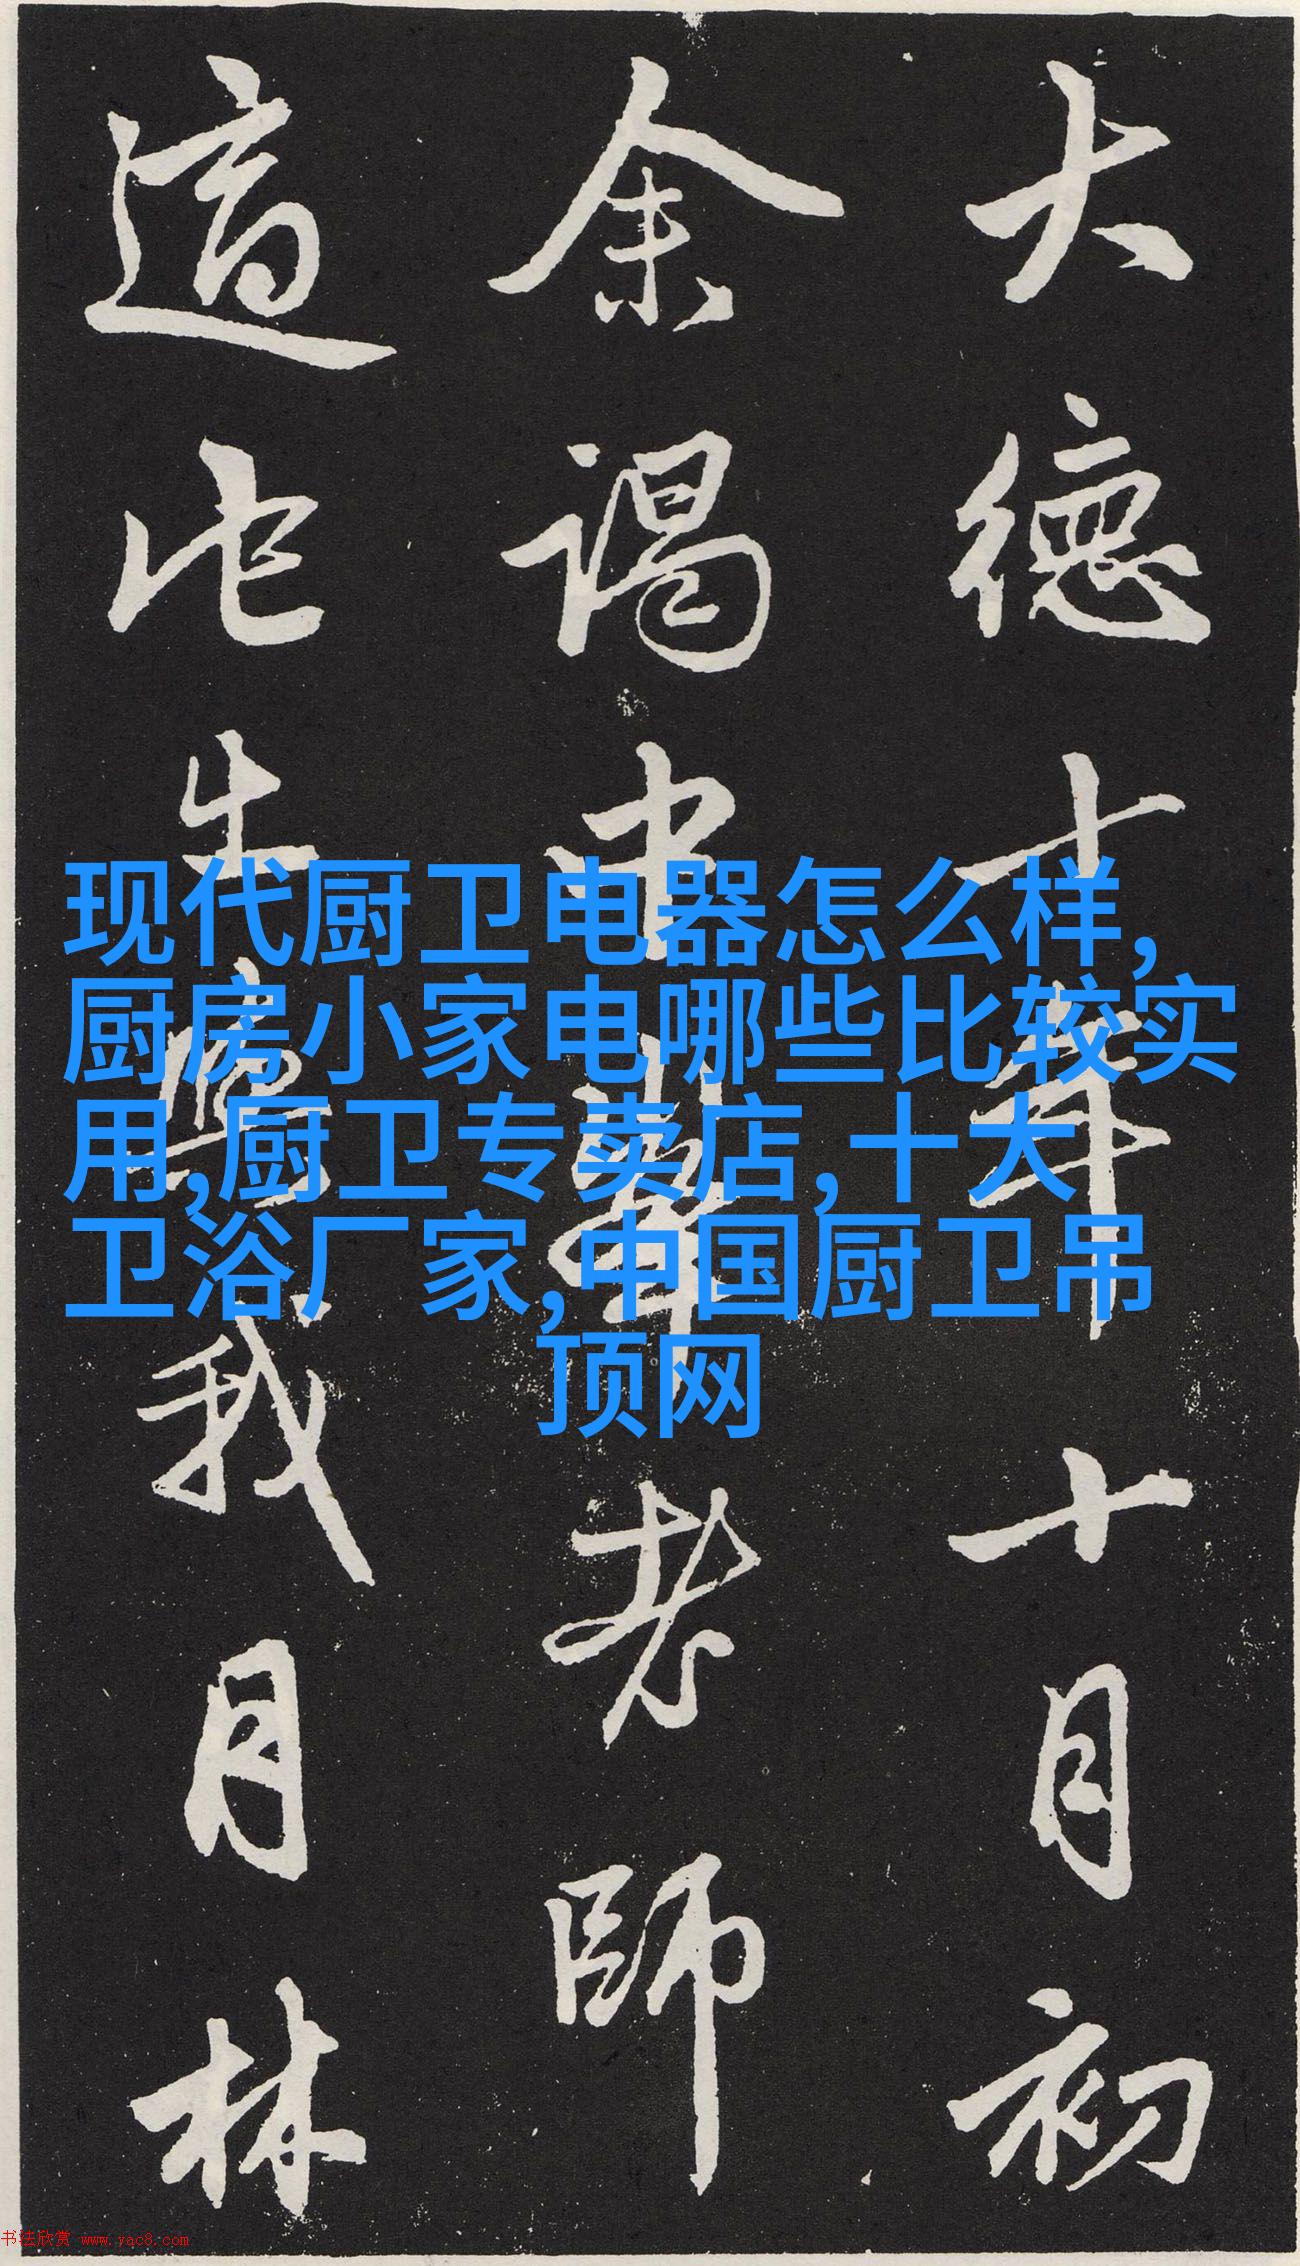 大德十年十月初
余謁中峯老師
適此與我月林
现代厨卫电器怎么样,
厨房小家电哪些比较实
用,厨卫专卖店,十大
卫浴厂家,中国厨卫吊
顶网
书法欣赏 www.yac8.com